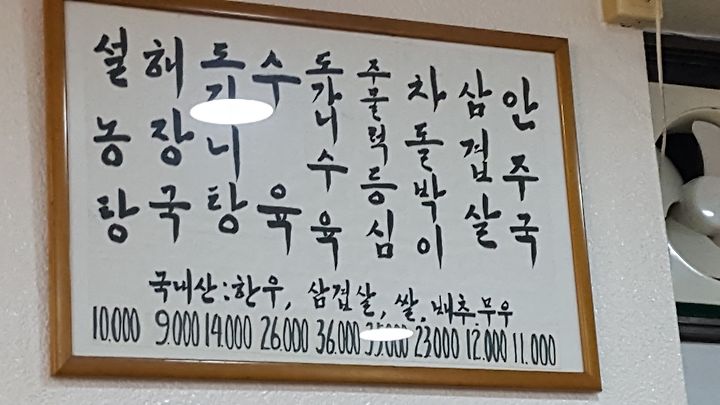 설농탕
해장국
도가니탕
수육
도가니수육
주물럭등심
차돌박이
삼겹살
안주국
국내산:한우, 삼겹살, 쌀, 배추.무우
10.000 9.000 14.000 26.000 36.000 35.000 23.000 12.000 11.000